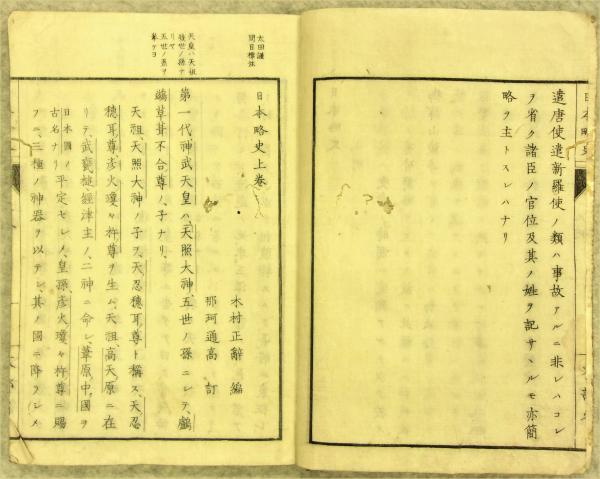 日本略史
遣唐使遣新羅使ノ類ハ事故アルニ非レハコレ
ヲ省ク諸臣ノ官位及其ノ姓ヲ記サヾルモ亦簡
略ヲ主トスレハナリ
太田謹
間目標注
日本略史上卷
木村正辭 編
那珂通高 訂
天皇ハ天祖
五世ノ孫ヲ
第一代、神武天皇ハ、天照大神、五世ノ孫ニシテ、鸕
鷀草葺不合尊ノ、子ナリ、
天祖、天照大神ノ子ヲ、天忍穗耳尊ト稱ス、天忍
穗耳尊、彦火瓊々杵尊ヲ生ム、天祖、高天原ニ在
リテ、武甕槌、經津主ノ、二神ニ命シ、葦原中國ヲ
日本國ノ古名ナリ
平定セシメ、皇孫彦火瓊々杵尊ニ賜
フニ、三種ノ神器ヲ以テシ、其ノ國ニ降ラシメ